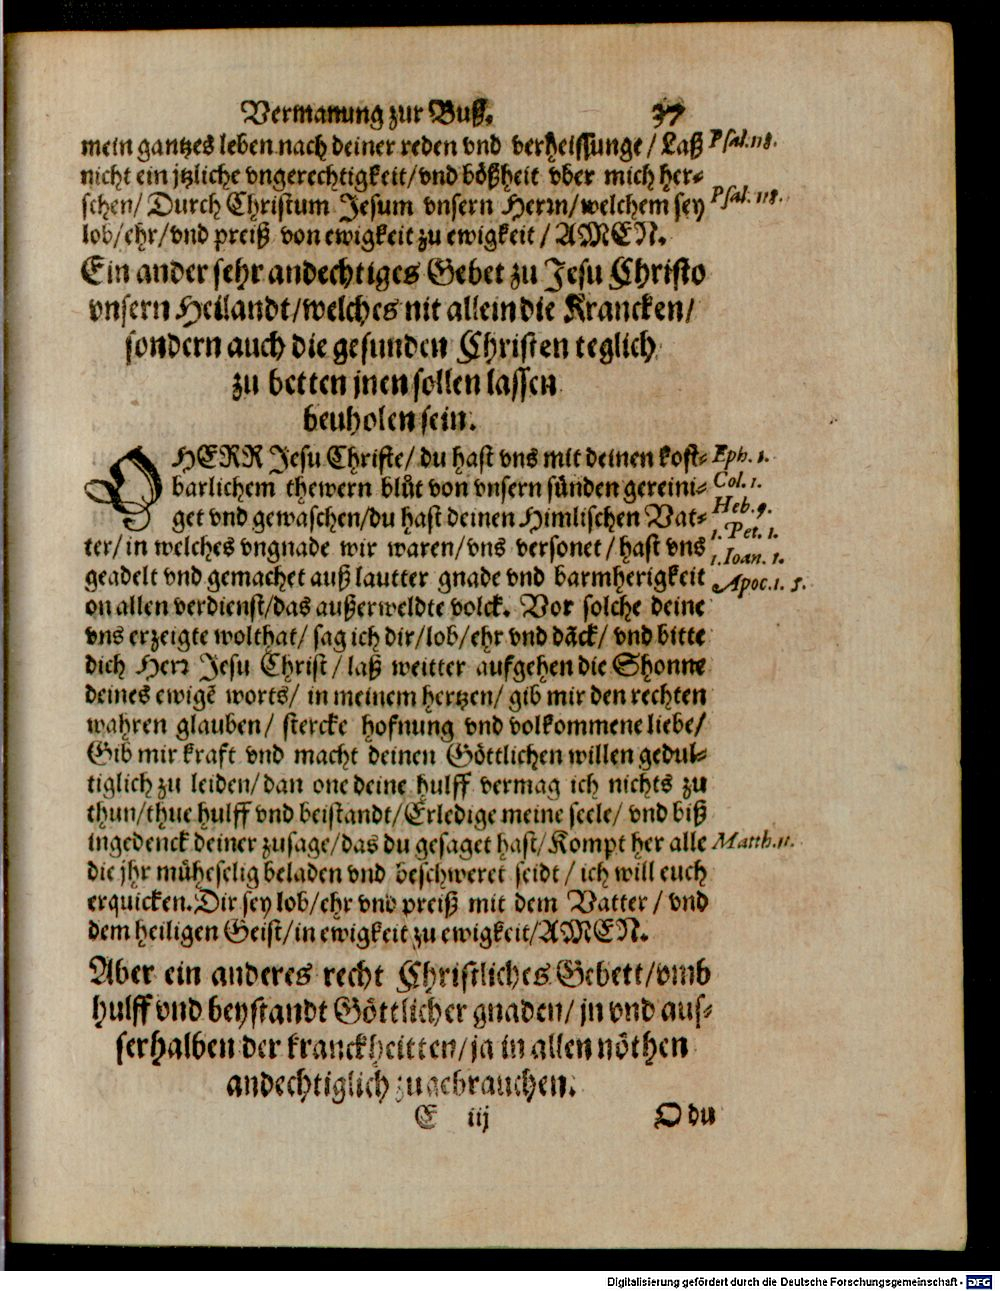 Vermanung zur Buß. 37
mein gantzes leben nach deiner reden vnd verheissunge / Laß Psal. 118.
nicht ein jtzliche vngerechtigkeit/ vnd bößheit vber mich her⸗
schen/ Durch Christum Jesum vnsern Herrn/ welchem sey Psal. 118.
lob/ ehr/ vnd preiß von ewigkeit zu ewigkeit / AMEN.
Ein ander sehr andechtiges Gebet zu Jesu Christo
vnsern Heilandt/ welches nit allein die Krancken/
sondern auch die gesunden Christen teglich
zu betten jnen sollen lassen
beuholen sein.
O HERR Jesu Christe/ du hast vns mit deinen kost⸗ Eph. 1.
barlichem thewern blůt von vnsern sünden gereini⸗ Col. 1.
get vnd gewaschen/ du hast deinen Himlischen Vat⸗ Heb. 9.
1. Pet. 1.
ter/ in welches vngnade wir waren/ vns versonet / hast vns 1. Ioan. 1.
geadelt vnd gemachet auß lautter gnade vnd barmherigkeit Apoc. 1. 5.
on allen verdienst/ das außerweldte volck. Vor solche deine
vns erzeigte wolthat/ sag ich dir/ lob/ ehr vnd dāck/ vnd bitte
dich Herr Jesu Christ / laß weitter aufgehen die Shonne
deines ewigē worts/ in meinem hertzen/ gib mir den rechten
wahren glauben/ stercke hofnung vnd volkommene liebe/
Gib mir kraft vnd macht deinen Göttlichen willen gedul⸗
tiglich zu leiden/ dan one deine hulff vermag ich nichts zu
thun/ thue hulff vnd beistandt/ Erledige meine seele/ vnd biß
ingedenck deiner zusage/ das du gesaget hast/ Kompt her alle Matth. 11.
die jhr müheselig beladen vnd beschweret seidt / ich will euch
erquicken. Dir sey lob/ ehr vnd preiß mit dem Vatter / vnd
dem heiligen Geist/ in ewigkeit zu ewigkeit/ AMEN.
Aber ein anderes recht Christliches Gebett/ vmb
hulff vnd beystandt Göttlicher gnaden/ jn vnd aus⸗
serhalben der kranckheitten/ ja in allen nöthen
andechtiglich zugebrauchen.
E iij O du
Digitalisierung gefördert durch die Deutsche Forschungsgemeinschaft - DFG